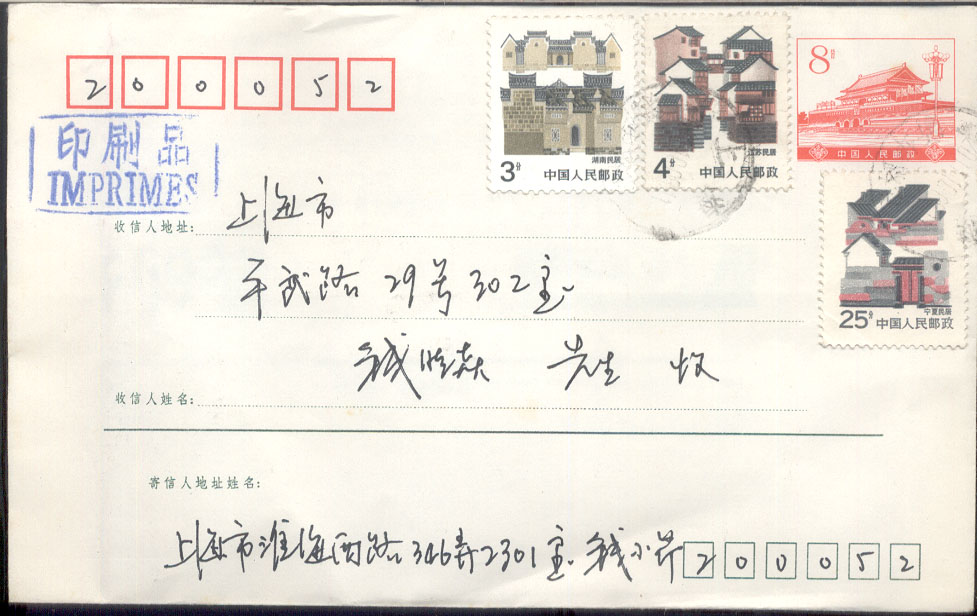 200052
印刷品
IMPRIMES
3分
湖南民居
中国人民邮政
4分
江苏民居
中国人民邮政
8分
中国人民邮政
25分
宁夏民居
中国人民邮政
收信人地址:
上海市
平武路29号302室
钱 先生 收
收信人姓名:
寄信人地址姓名:
上海市淮海西路346弄2301室 钱小芹
200052